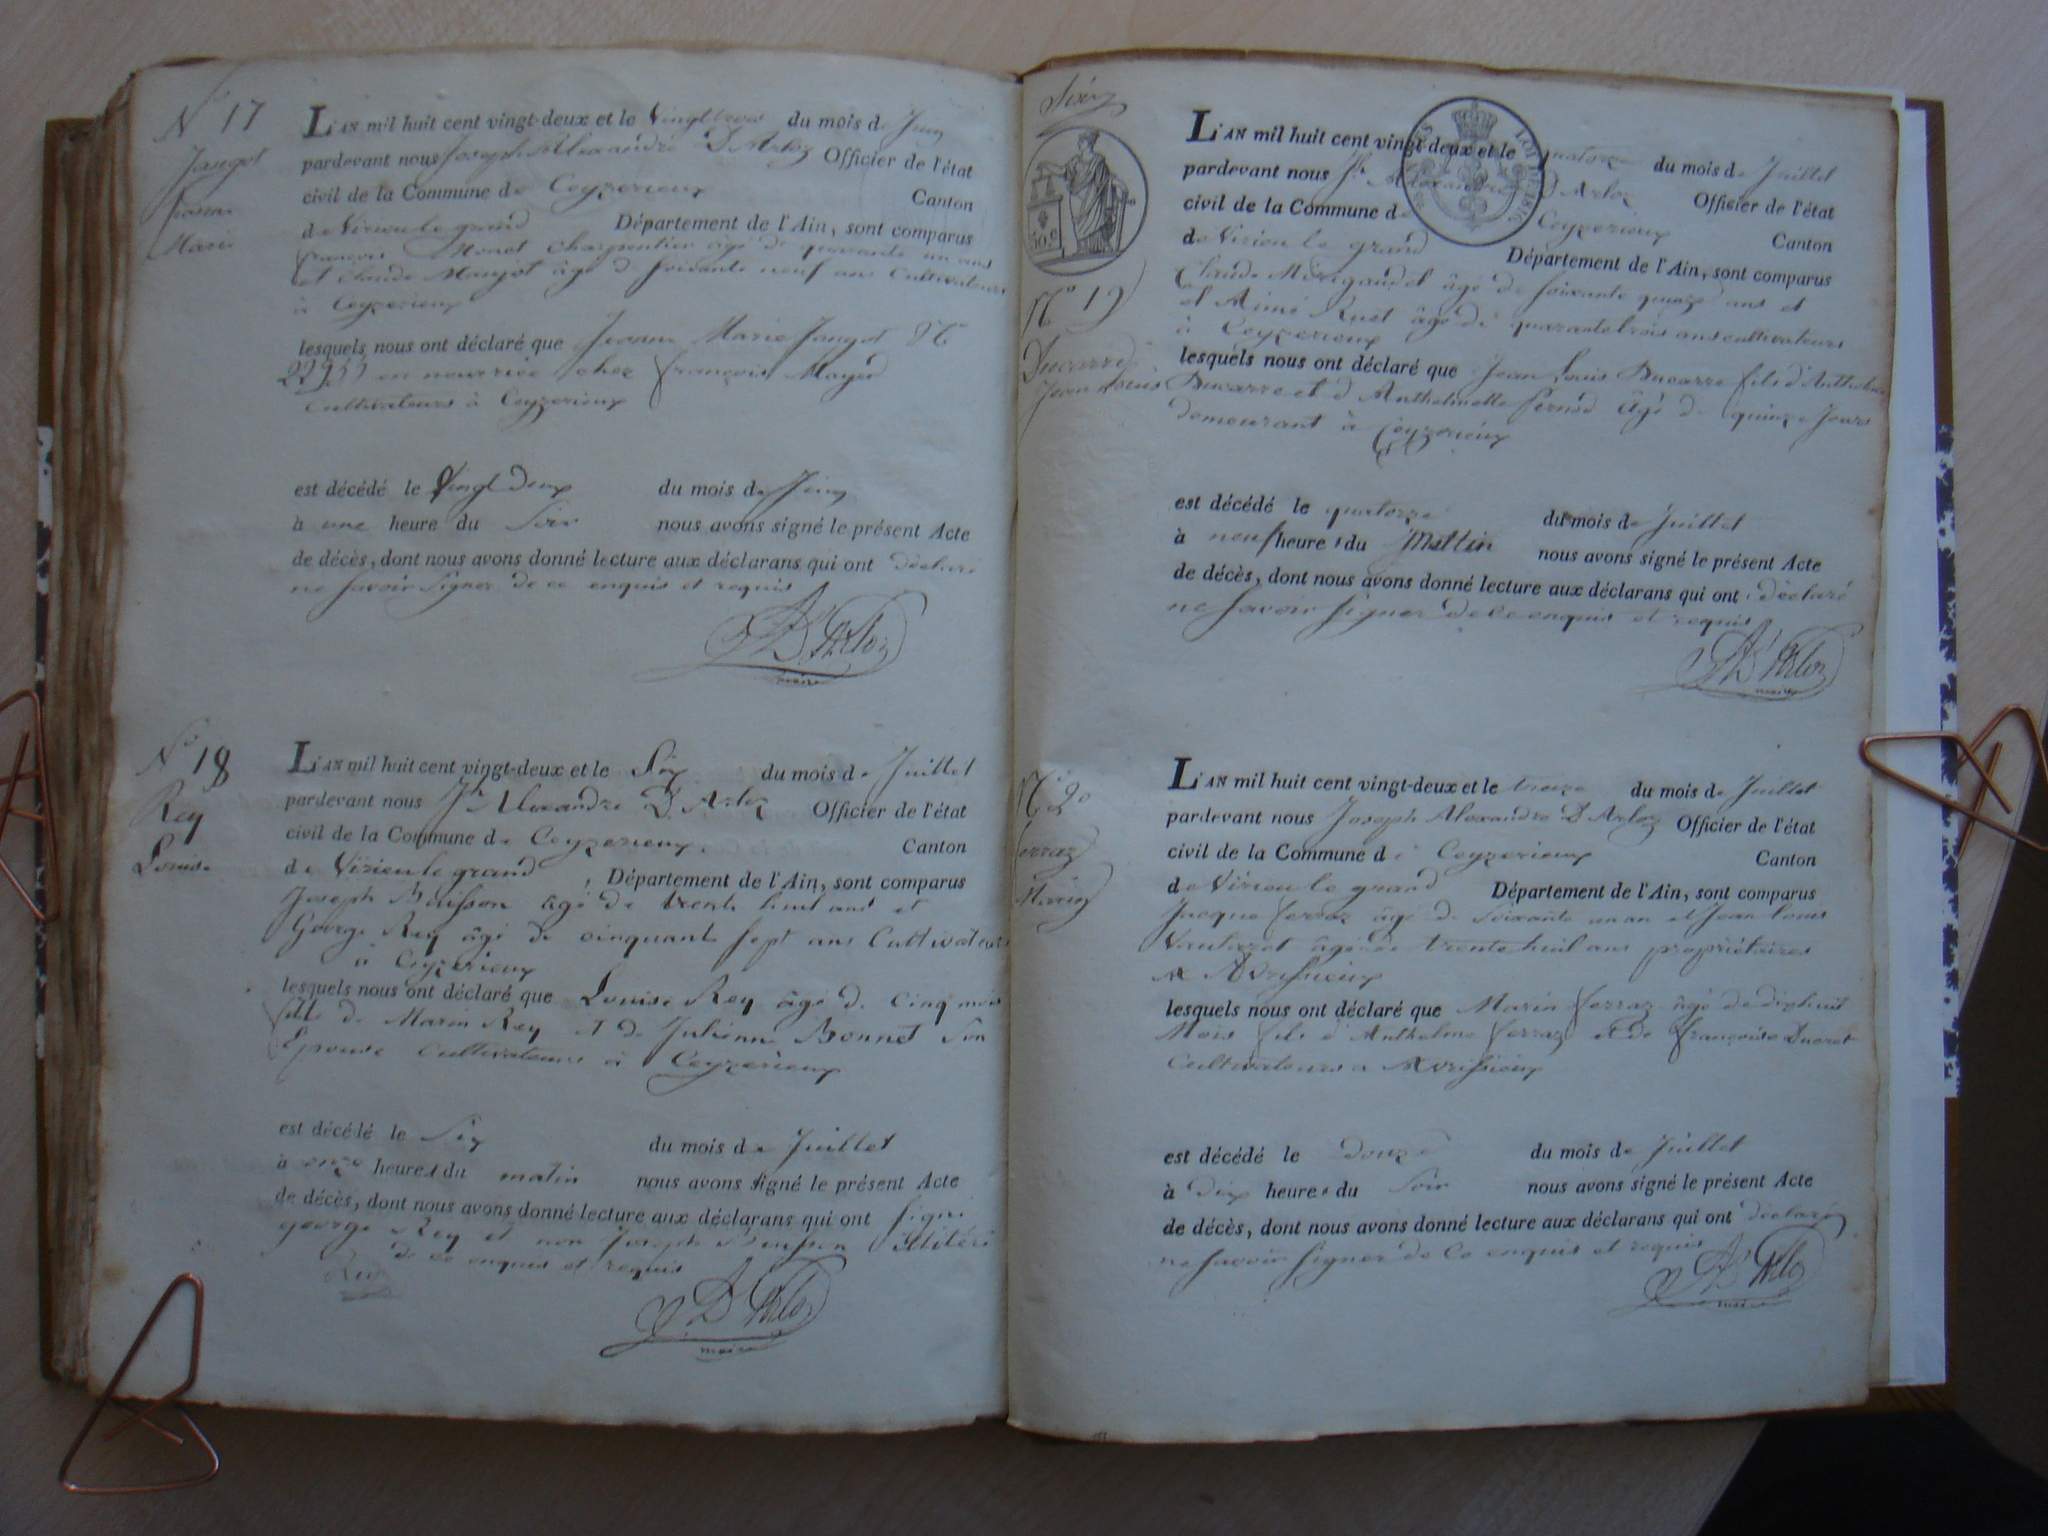 N° 17
Jangot
Jeanne
Marie
L'AN mil huit cent vingt-deux et le Vingt trois du mois de Juin
pardevant nous Joseph Alexandre D'Arloz Officier de l'état
civil de la Commune de Ceyzerieux Canton
de Virieu le grand Département de l'Ain, sont comparus
françois Monet charpentier âgé de quarante un ans
et Claude Mangot âgé de soixante neuf ans Cultivateurs
à Ceyzerieux
lesquels nous ont déclaré que Jeanne Marie Jangot N°
en nourrice chez françois
Cultivateurs à Ceyzerieux
est décédé le Vingt Deux du mois de Juin
à une heure du Soir nous avons signé le présent Acte
de décès, dont nous avons donné lecture aux déclarans qui ont déclaré
ne savoir signer de ce enquis et requis
D'Arloz
maire
N° 18
Rey
Louise
L'AN mil huit cent vingt-deux et le Six du mois de Juillet
pardevant nous Jh Alexandre D'Arloz Officier de l'état
civil de la Commune de Ceyzerieux. Canton
de Virieu le grand, Département de l'Ain, sont comparus
Joseph Buisson âgé de trente huit ans et
George Rey âgé de cinquante sept ans Cultivateurs
à Ceyzerieux
lesquels nous ont déclaré que Louise Rey âgé de Cinq mois
fille de Marin Rey et de Julienne Bonnet Son
Epouse Cultivateurs à Ceyzerieux
est décédé le Six du mois de Juillet
à onze heures du matin nous avons signé le présent Acte
de décès, dont nous avons donné lecture aux déclarans qui ont signé
george Rey et non Joseph Buisson illitéré
de ce enquis et requis
Rey
D'Arloz
maire
50 c
LOI DE 1816
N° 19
Ducarre
Jean Louis
L'AN mil huit cent vingt-deux et le quatorze du mois de Juillet
pardevant nous Jh Alexandre D'Arloz Officier de l'état
civil de la Commune de Ceyzerieux Canton
de Virieu le grand Département de l'Ain, sont comparus
Claude Mérigaudet âgé de soixante quinze ans et
et Aimé Ruet âgé de quarante trois ans cultivateurs
à Ceyzerieux
lesquels nous ont déclaré que Jean Louis Ducarre fils d'Anthelme
Ducarre et d'Anthelmette âgé de quinze Jours
demeurant à Ceyzerieux
est décédé le quatorze du mois de Juillet
à neuf heures du Mattin nous avons signé le présent Acte
de décès, dont nous avons donné lecture aux déclarans qui ont déclaré
ne savoir signer de ce enquis et requis
D'Arloz
maire
N° 20
ferraz
Marin
L'AN mil huit cent vingt-deux et le treize du mois de Juillet
pardevant nous Joseph Alexandre D'Arloz Officier de l'état
civil de la Commune de Ceyzerieux Canton
de Virieu le grand Département de l'Ain, sont comparus
Jacque ferraz âgé de soixante un an et Jean Louis
Vautaret âgé de trente huit ans propriétaires
à Avrissieux
lesquels nous ont déclaré que Marin ferraz âgé de dixhuit
Mois fils d'Anthelme ferraz et de françoise Ducret
Cultivateurs a Avrissieux
est décédé le douze du mois de Juillet
à dix heures du Soir nous avons signé le présent Acte
de décès, dont nous avons donné lecture aux déclarans qui ont déclaré
ne savoir signer de ce enquis et requis
D'Arloz
maire